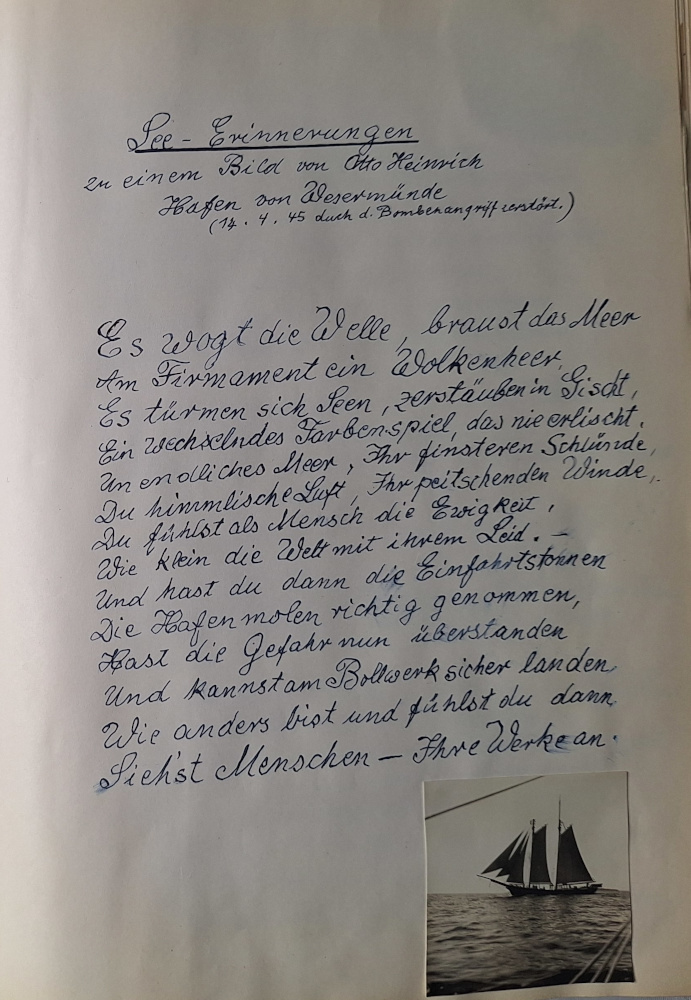 See - Erinnerungen
zu einem Bild von Otto Heinrich
Hafen von Wesermünde
(14. 4. 45 duch d. Bombenangriff zerstört.)
Es wogt die Welle, braust das Meer
Am Firmament ein Wolkenheer,
Es türmen sich Seen, zerstäuben in Gischt,
Ein wechselndes Farbenspiel, das nie erlischt.
Unendliches Meer, Ihr finsteren Schlünde,
Du himmlische Luft, Ihr peitschenden Winde,
Du fühlst als Mensch die Ewigkeit,
Wie klein die Welt mit ihrem Leid. –
Und hast du dann die Einfahrtstonnen
Die Hafenmolen richtig genommen,
Hast die Gefahr nun überstanden
Und kannst am Bollwerk sicher landen,
Wie anders bist und fühlst du dann,
Sieh'st Menschen – Ihre Werke an.